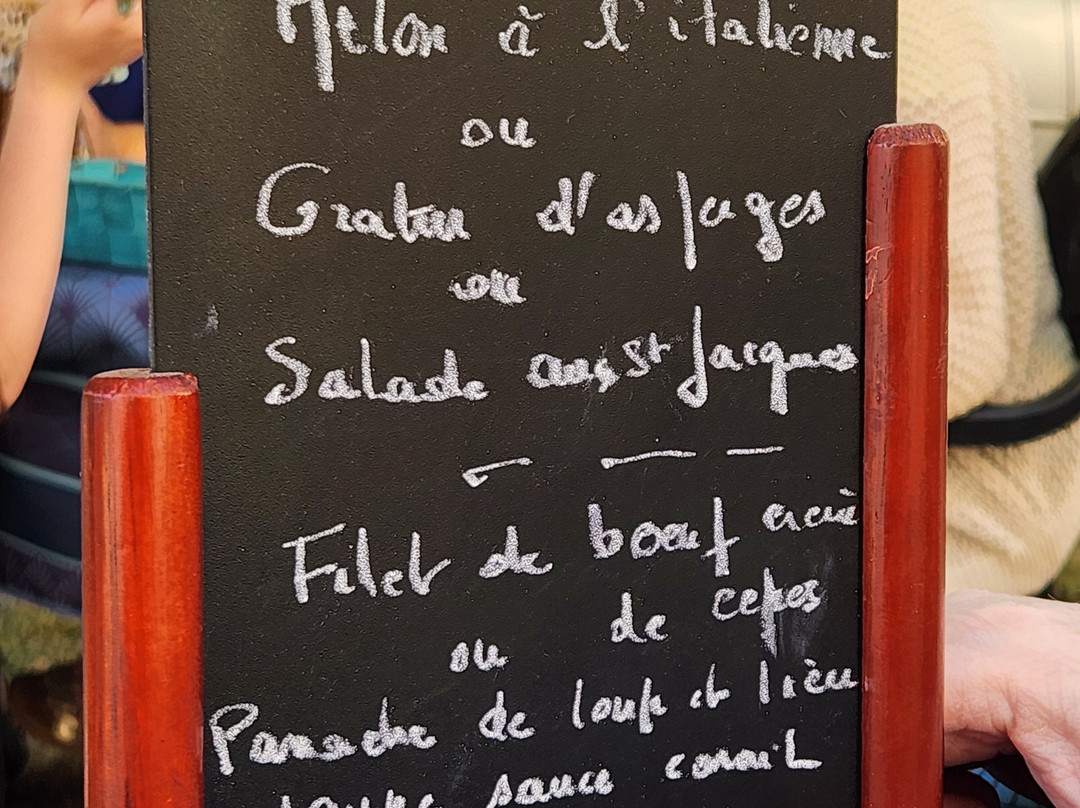 Melon à l'italienne
ou
Gratin d'asperges
ou
Salade aux St Jacques
Filet de boeuf
de cepes
ou
Panache de loup et lieu
sauce corail